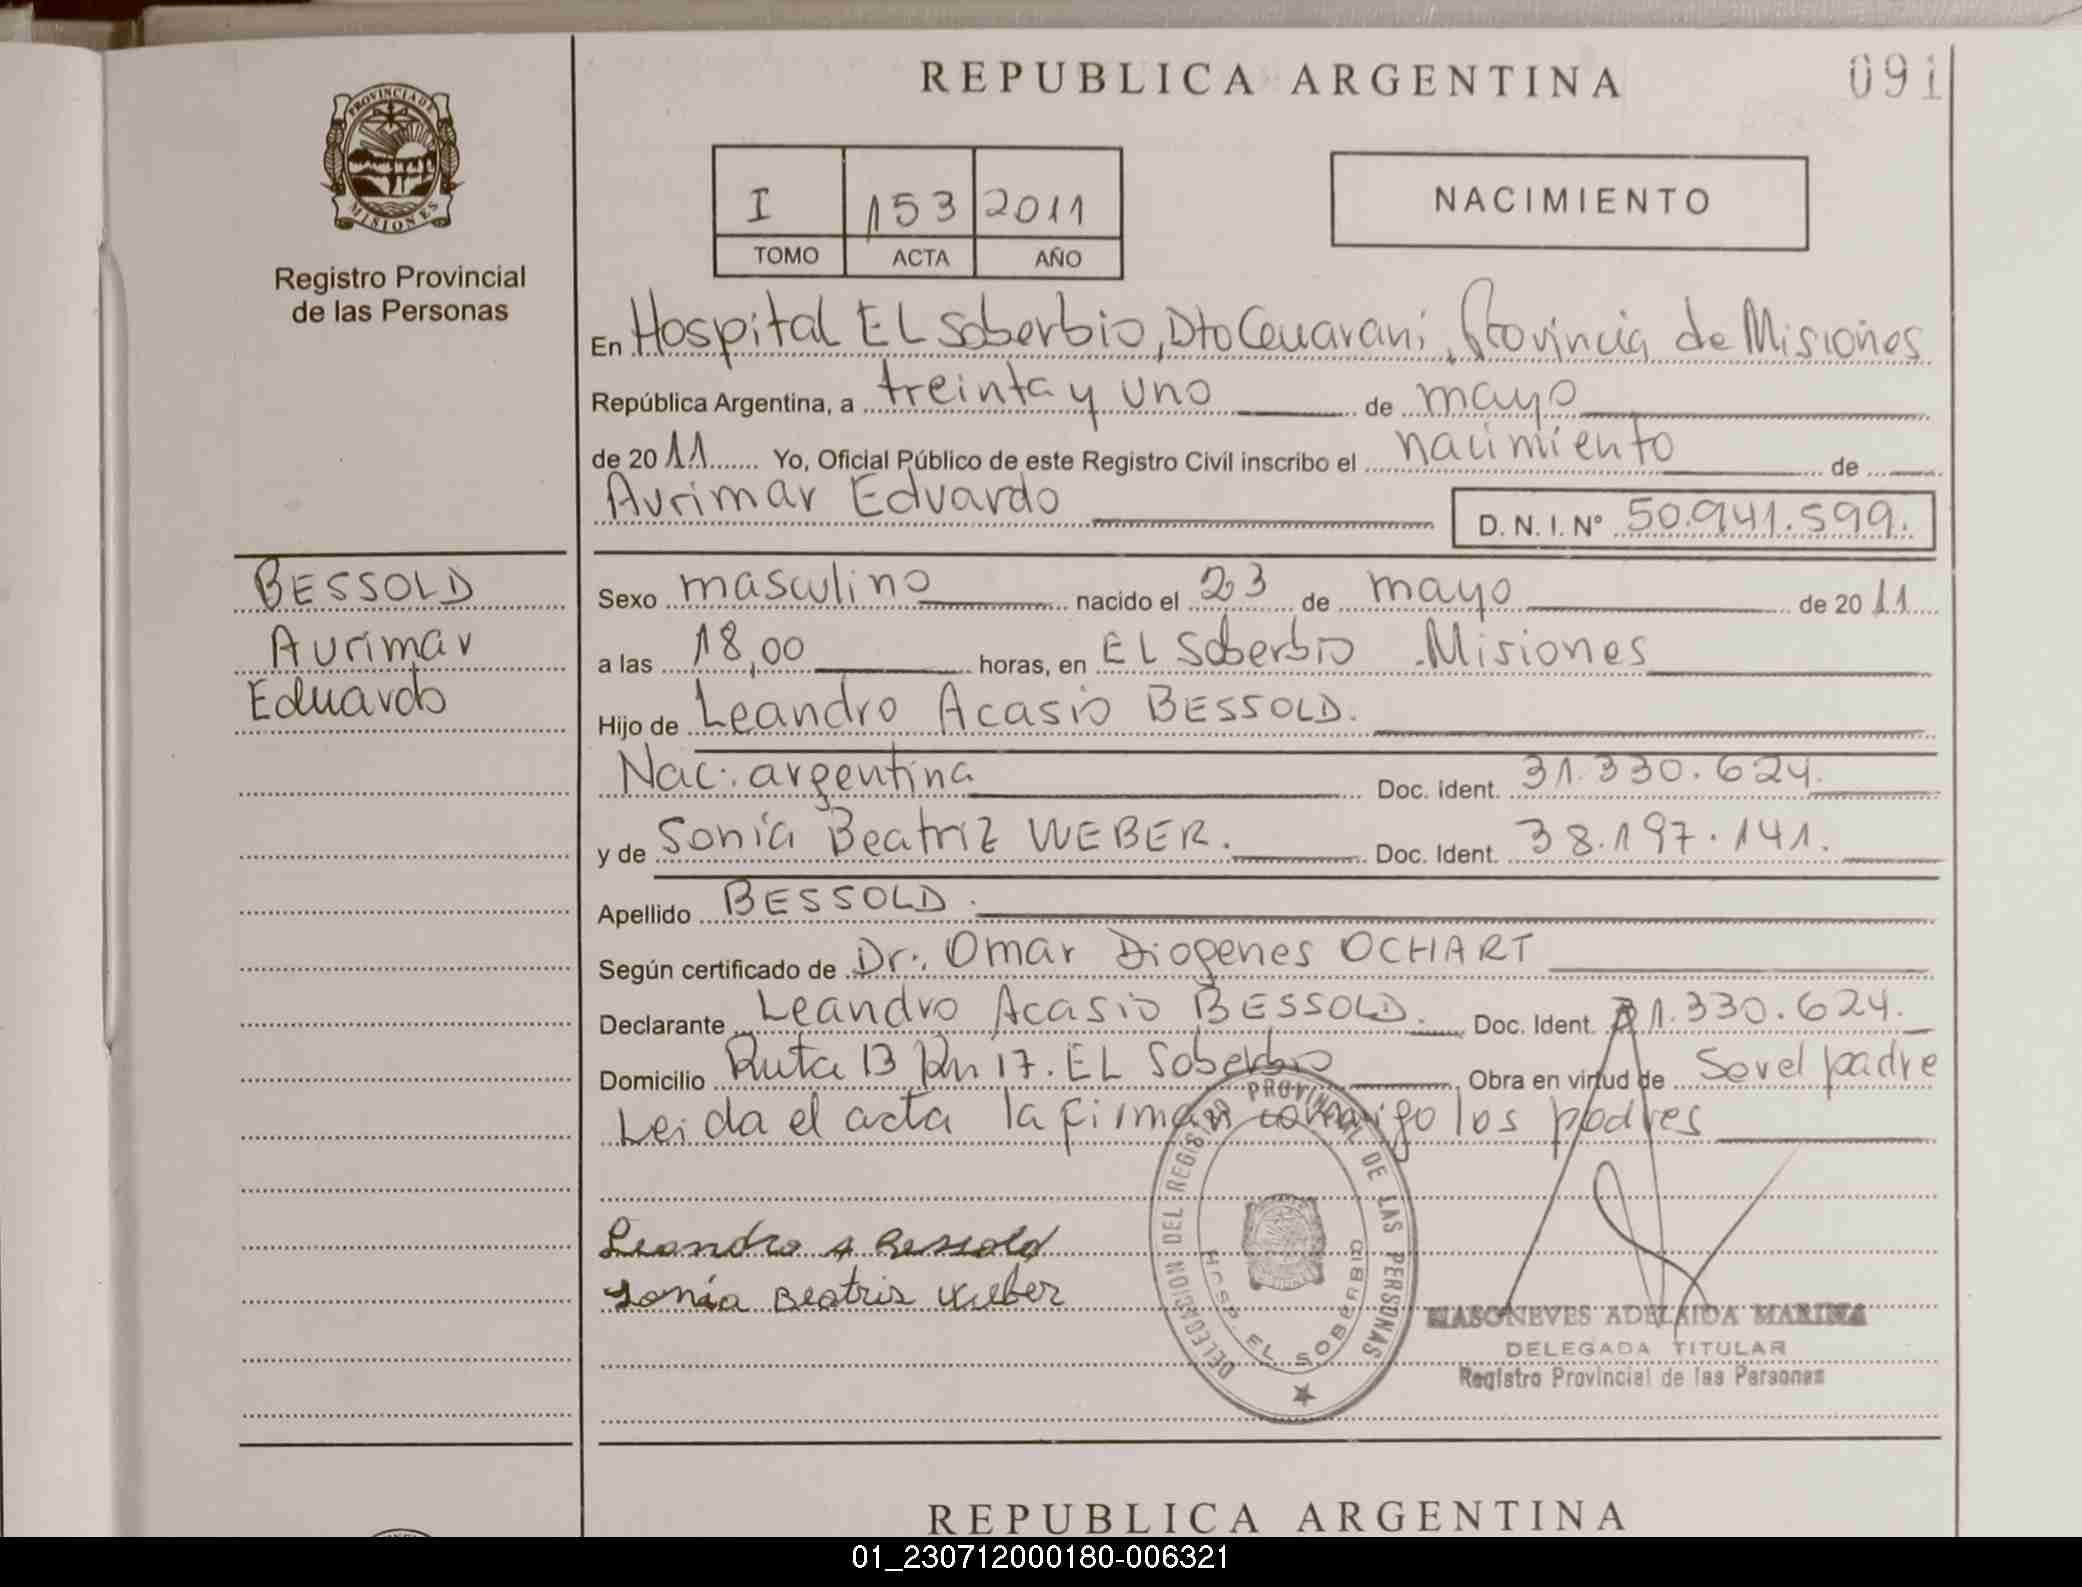 REPUBLICA ARGENTINA
091
PROVINCIA DE
MISIONES
Registro Provincial
de las Personas
I 153 2011
TOMO ACTA AÑO
NACIMIENTO
En Hospital EL Soberbio, Dto Guarani, Provincia de Misiones
República Argentina, a treinta y uno de mayo
de 2011 Yo, Oficial Público de este Registro Civil inscribo el nacimiento de
Aurimar Eduardo D. N. I. N° 50.941.599.
BESSOLD
Aurimar
Eduardo
Sexo masculino nacido el 23 de mayo de 2011
a las 18,00 horas, en EL Soberbio Misiones
Hijo de Leandro Acasio BESSOLD.
Nac. argentina Doc. ident. 31.330.624.
y de Sonia Beatriz WEBER. Doc. Ident. 38.197.141.
Apellido BESSOLD.
Según certificado de Dr. Omar Diogenes OCHART
Declarante Leandro Acasio BESSOLD. Doc. Ident. 31.330.624.
Domicilio Ruta 13 Km 17. EL Soberbio Obra en virtud de Ser el padre
Leida el acta la firman conmigo los padres
Leandro A Bessold
Sonia Beatris Weber
DELEGACION DEL REGISTRO PROVINCIAL DE LAS PERSONAS
HOSP. EL SOBERBIO
MASONEVES ADELAIDA MARINA
DELEGADA TITULAR
Registro Provincial de las Personas
REPUBLICA ARGENTINA
01_230712000180-006321